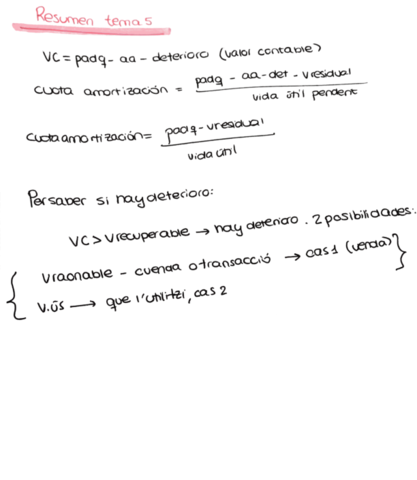 Resumen tema 5
VC = padq - aa - deterioro (valor contable)
cuota amortización = padq - aa - det - vresidual
vida útil pendent
cuota amortización = padq - vresidual
vida útil
Per saber si hay deterioro:
VC > Vrecuperable → hay deterioro. 2 posibilidades:
Vraonable - cuenda o transacció → cas 1 (venda)
V.ús → que l'utilitzi, cas 2